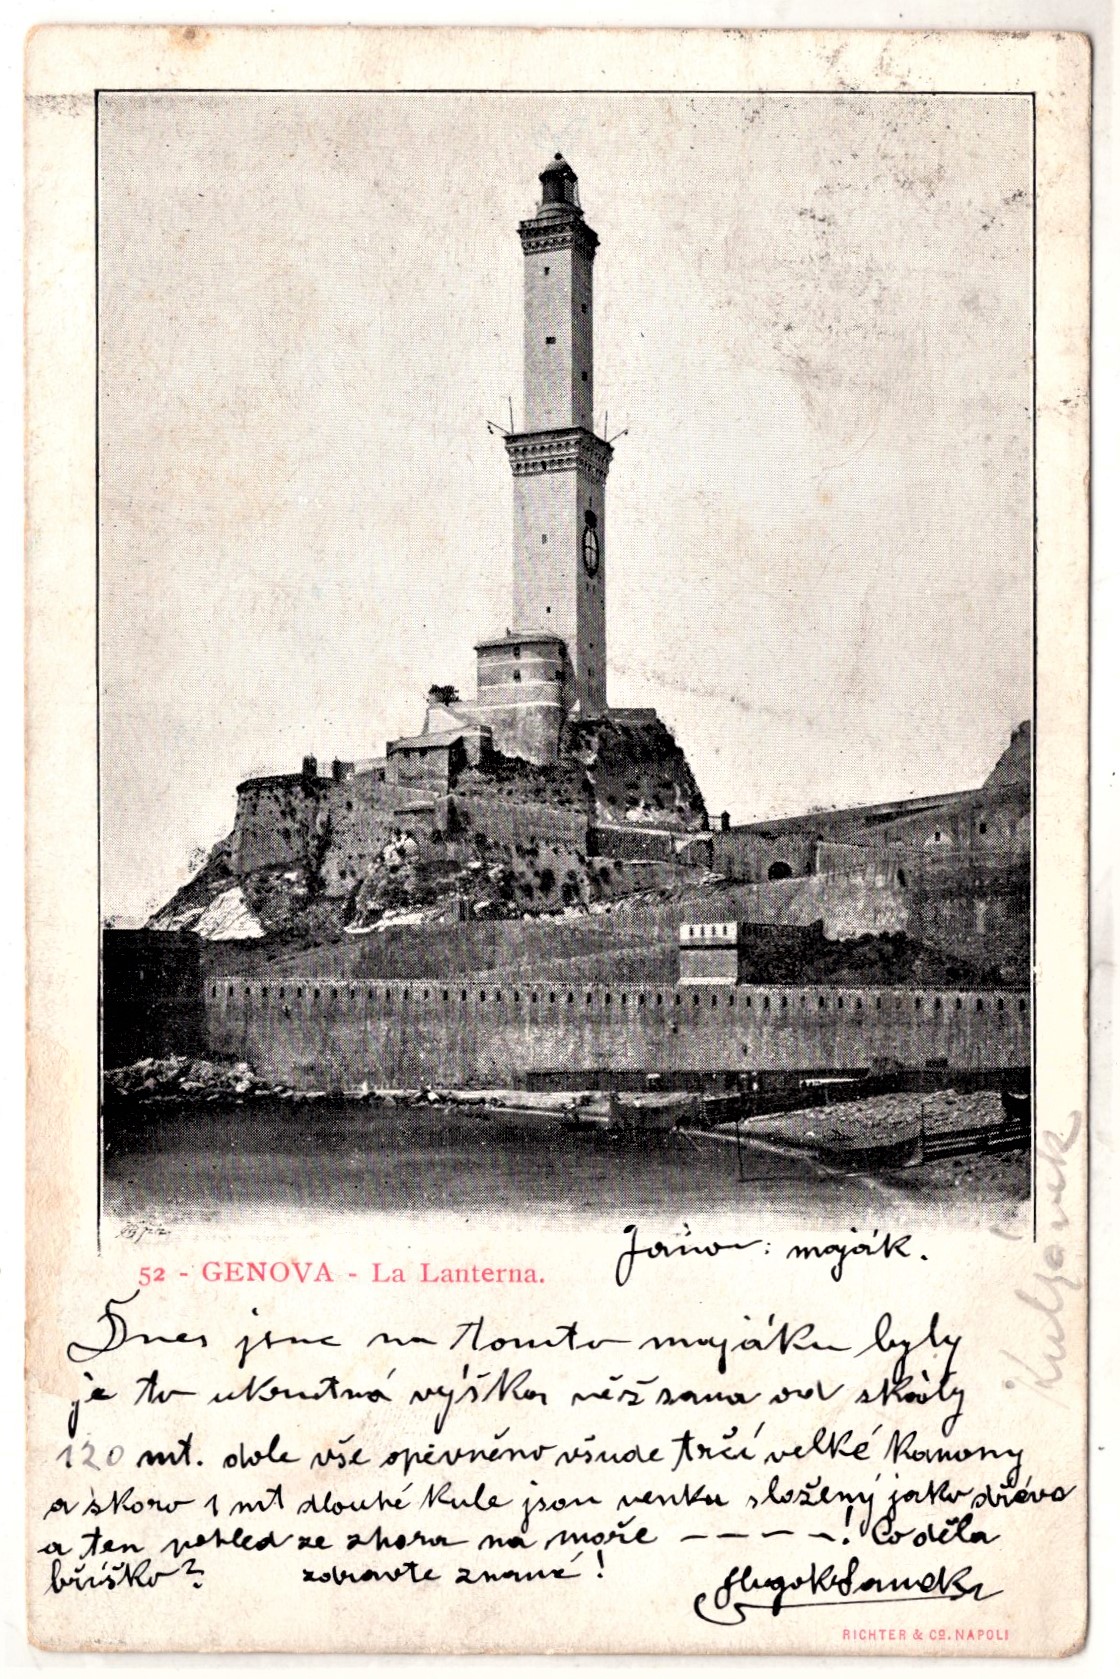 Janov: maják.
52 - GENOVA - La Lanterna.
Dnes jsme na tomto majáku byly
je to ukrutná výška věž sama od skály
120 mt. dole vše opevněno všude trčí velké kanony
a skoro 1 mt dlouhé kule jsou venku složený jako dřévo
a ten pohled ze zhora na moře — — — —! Co děla
bříško? zdravte známé!
RICHTER & Co. NAPOLI